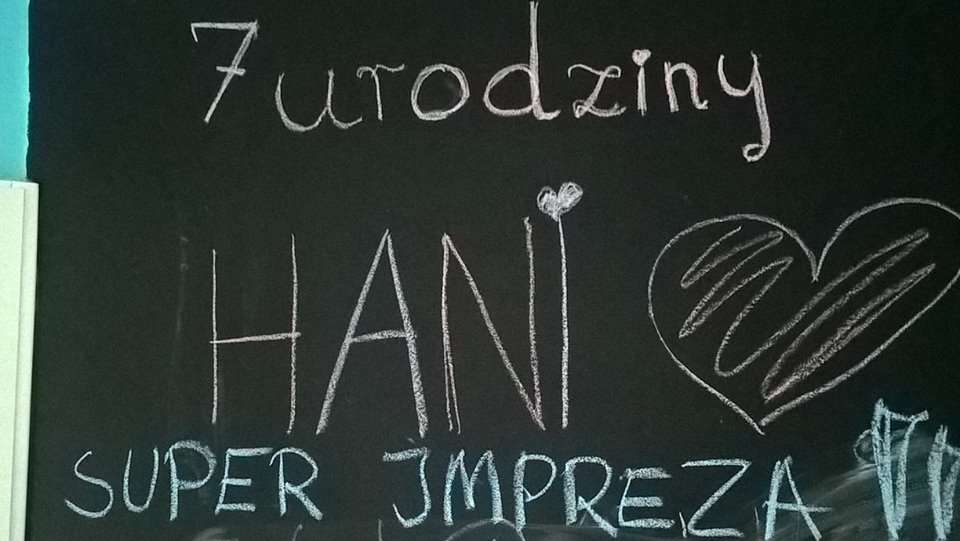 7 urodziny
HANI
SUPER IMPREZA !!